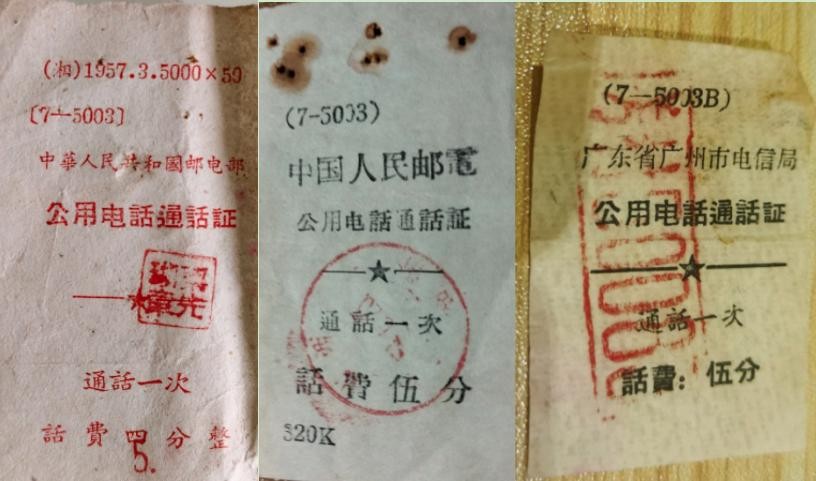 (湘)1957.3.5000×50
〔7—5003〕
中華人民共和國邮电部
公用电話通話証
通話一次
話費四分整
5.
(7-5003)
中国人民邮電
公用电話通話証
通話一次
話費伍分
320K
(7—5003B)
广东省广州市电信局
公用电話通話証
通話一次
話費：伍分